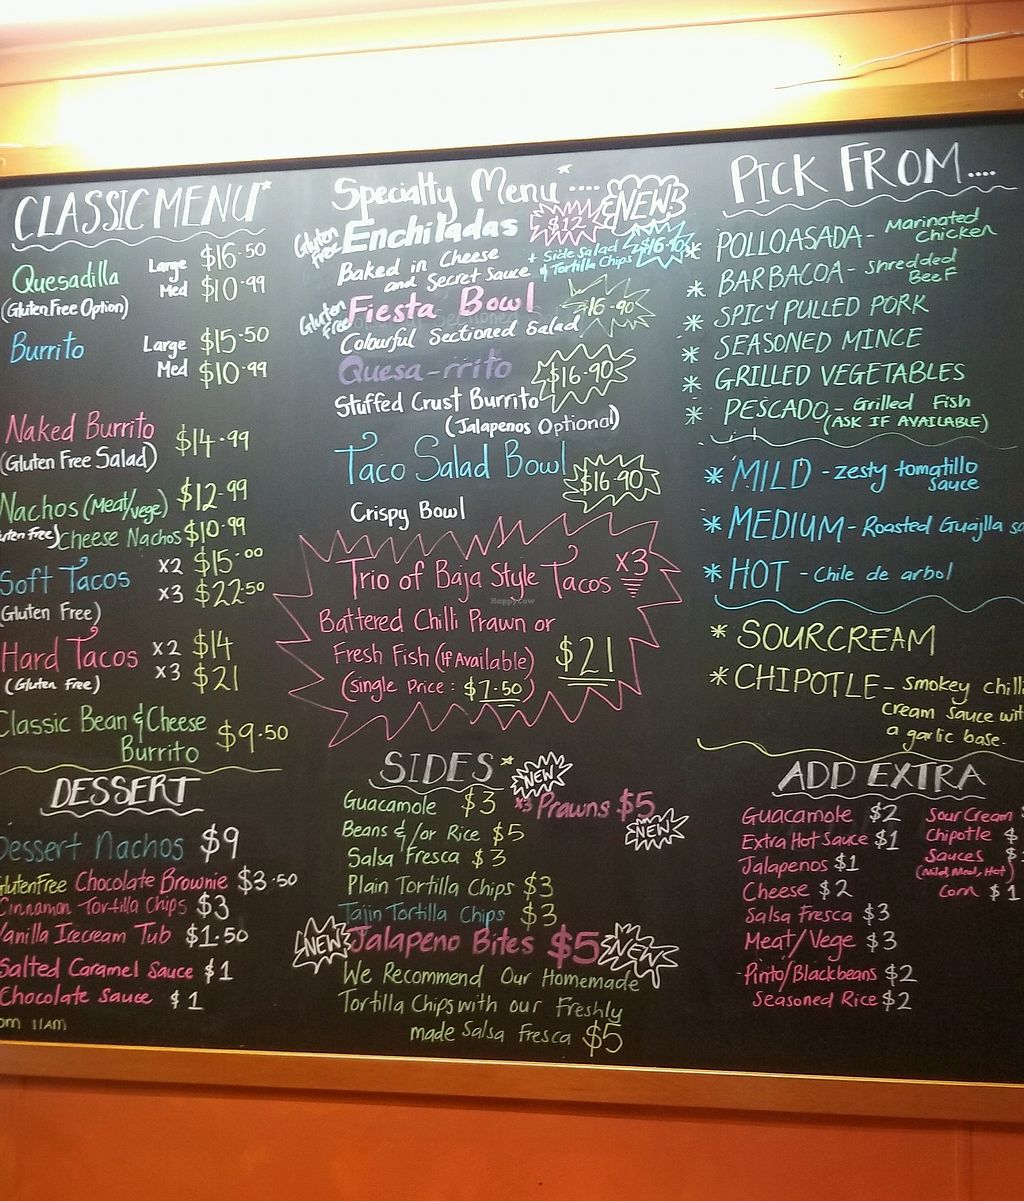 CLASSIC MENU*
Quesadilla Large $16.50
(Gluten Free Option) Med $10.99
Burrito Large $15.50
Med $10.99
Naked Burrito $14.99
(Gluten Free Salad)
Nachos (Meat/vege) $12.99
Free) Cheese Nachos $10.99
Soft Tacos x2 $15.00
(Gluten Free) x3 $22.50
Hard Tacos x2 $14
(Gluten Free) x3 $21
Classic Bean & Cheese
Burrito $9.50
DESSERT
Dessert Nachos $9
Gluten Free Chocolate Brownie $3.50
Cinnamon Tortilla Chips $3
Vanilla Icecream Tub $1.50
Salted Caramel Sauce $1
Chocolate Sauce $1
11AM
Specialty Menu*....
NEW
Gluten Free Enchiladas $12
Baked in Cheese
and Secret Sauce
+ Side Salad
& Tortilla Chips $16.90
Gluten Free Fiesta Bowl $16.90
Colourful Sectioned Salad
Quesa-rrito $16.90
Stuffed Crust Burrito
(Jalapenos Optional)
Taco Salad Bowl $16.90
Crispy Bowl
Trio of Baja Style Tacos x3
Battered Chilli Prawn or
Fresh Fish (If Available) $21
(Single Price: $7.50)
HappyCow
SIDES*
NEW
Guacamole $3
x3 Prawns $5
NEW
Beans &/or Rice $5
Salsa Fresca $3
Plain Tortilla Chips $3
Tajin Tortilla Chips $3
NEW Jalapeno Bites $5 NEW
We Recommend Our Homemade
Tortilla Chips with our Freshly
made Salsa Fresca $5
PICK FROM....
* POLLOASADA - Marinated
Chicken
* BARBACOA - Shredded
Beef
* SPICY PULLED PORK
* SEASONED MINCE
* GRILLED VEGETABLES
* PESCADO - Grilled Fish
(ASK IF AVAILABLE)
* MILD - zesty tomatillo
sauce
* MEDIUM - Roasted Guajlla
* HOT - Chile de arbol
* SOURCREAM
* CHIPOTLE - smokey chilli
cream sauce with
a garlic base.
ADD EXTRA
Guacamole $2
Extra Hot Sauce $1
Jalapenos $1
Cheese $2
Salsa Fresca $3
Meat/Vege $3
Pinto/Blackbeans $2
Seasoned Rice $2
Sour Cream
Chipotle $
Sauces $
(Mild, Med, Hot)
Corn $1